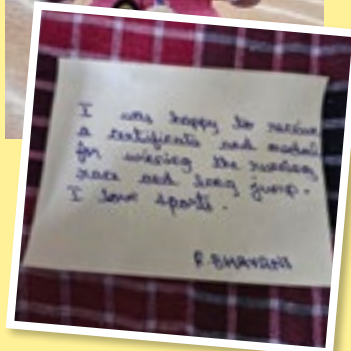 I was happy to receive
a certificate and medal
for winning the running
race and long jump.
I love sports.
R.BHAVANI